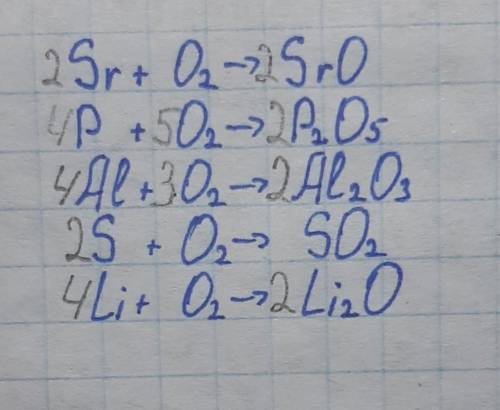 2Sr + O₂ → 2SrO
4P + 5O₂ → 2P₂O₅
4Al + 3O₂ → 2Al₂O₃
2S + O₂ → SO₂
4Li + O₂ → 2Li₂O